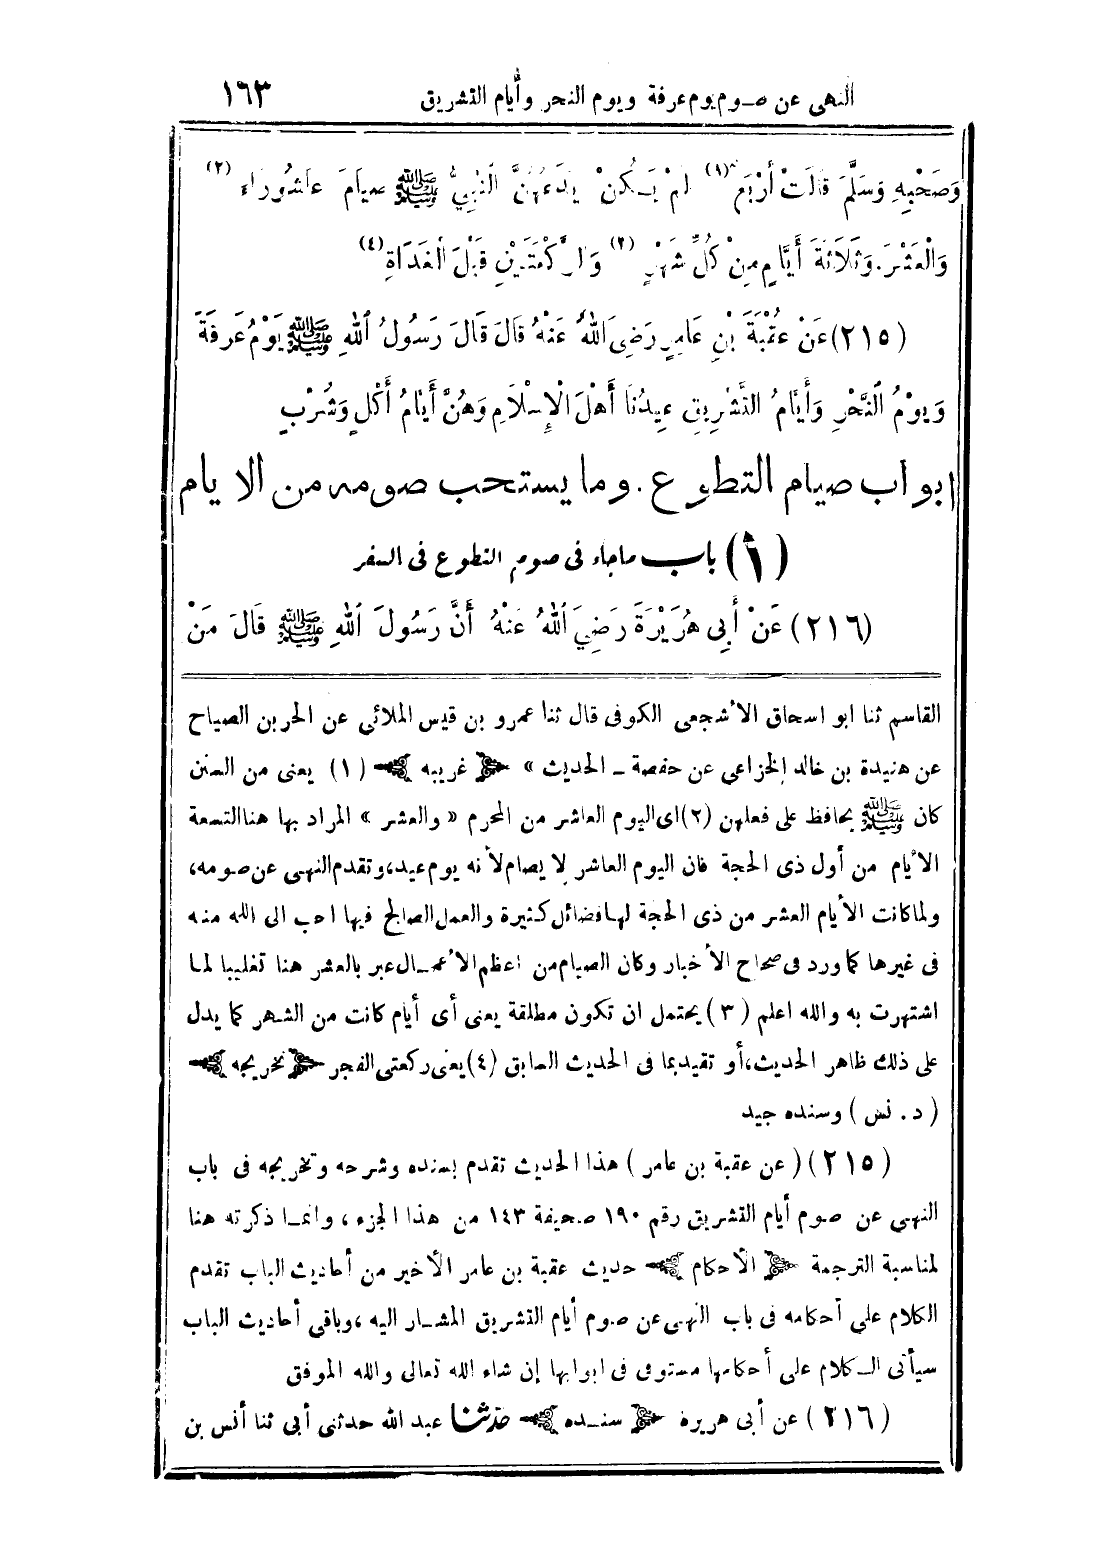 النهى عن صوم يوم عرفة ويوم النحر وأيام التشريق ١٦٣
وَصَحْبِهِ وَسَلَّمَ قَالَتْ أَرْبَع (١) لَمْ يَكُنْ يَدَعُهُنَّ النَّبِيُّ ﷺ صِيَامَ عَاشُورَاءَ (٢)
وَالْعَشْرَ. وَثَلَاثَةَ أَيَّامٍ مِنْ كُلِّ شَهْرٍ (٣) وَالرَّكْعَتَيْنِ قَبْلَ الْغَدَاةِ (٤)
(٢١٥) عَنْ عُقْبَةَ بْنِ عَامِرٍ رَضِيَ اللهُ عَنْهُ قَالَ قَالَ رَسُولُ اللهِ ﷺ يَوْمُ عَرفَةَ
وَيوْمُ النَّحْرِ وَأَيَّامُ التَّشْرِيقِ عِيدُنَا أَهْلَ الْإِسْلَامِ وَهُنَّ أَيَّامُ أَكْلٍ وَشُرْبٍ
ابواب صيام التطوع. وما يستحب صومه من الايام
(١) باب ماجاء فى صوم التطوع فى السفر
(٢١٦) عَنْ أَبِى هُرَيْرَةَ رَضِيَ اللهُ عَنْهُ أَنَّ رَسُولَ اللهِ ﷺ قَالَ مَنْ
القاسم ثنا ابو اسحاق الأشجعى الكوفى قال ثنا عمرو بن قيس الملائى عن الحر بن الصياح
عن هنيدة بن خالد الخزاعي عن حفصة ــ الحديث » ﴿ غريبه ﴾ (١) يعنى من السنن
كان ﷺ يحافظ على فعلهن (٢) اى اليوم العاشر من المحرم « والعشر » المراد بها هنا التسعة
الأيام من أول ذى الحجة فان اليوم العاشر لا يصام لأنه يوم عيد، وتقدم النهى عن صومه،
ولما كانت الأيام العشر من ذى الحجة لها فضائل كثيرة والعمل الصالح فيها احب الى الله منه
فى غيرها كما ورد فى صحاح الأخبار وكان الصيام من اعظم الأعمال عبر بالعشر هنا تغليبا لما
اشتهرت به والله اعلم (٣) يحتمل ان تكون مطلقة يعنى أى أيام كانت من الشهر كما يدل
على ذلك ظاهر الحديث، أو تقيد بما فى الحديث السابق (٤) يعنى ركعتى الفجر ﴿ تخريجه ﴾
(د. نس) وسنده جيد
(٢١٥) (عن عقبة بن عامر) هذا الحديث تقدم بسنده وشرحه وتخريجه فى باب
النهى عن صوم أيام التشريق رقم ١٩٠ صحيفة ١٤٣ من هذا الجزء، وانما ذكرته هنا
لمناسبة الترجمة ﴿ الأحكام ﴾ حديث عقبة بن عامر الأخير من أحاديث الباب تقدم
الكلام على أحكامه فى باب النهى عن صوم أيام التشريق المشار اليه، وباقى أحاديث الباب
سيأتى الكلام على أحكامها مستوفى فى ابوابها إن شاء الله تعالى والله الموفق
(٢١٦) عن أبى هريرة ﴿ سنده ﴾ حدثنا عبد الله حدثنى أبى ثنا أنس بن